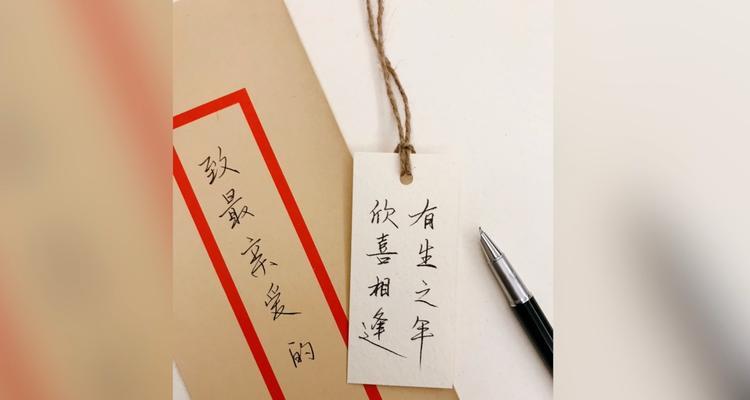 致最亲爱的
有生之年
欣喜相逢